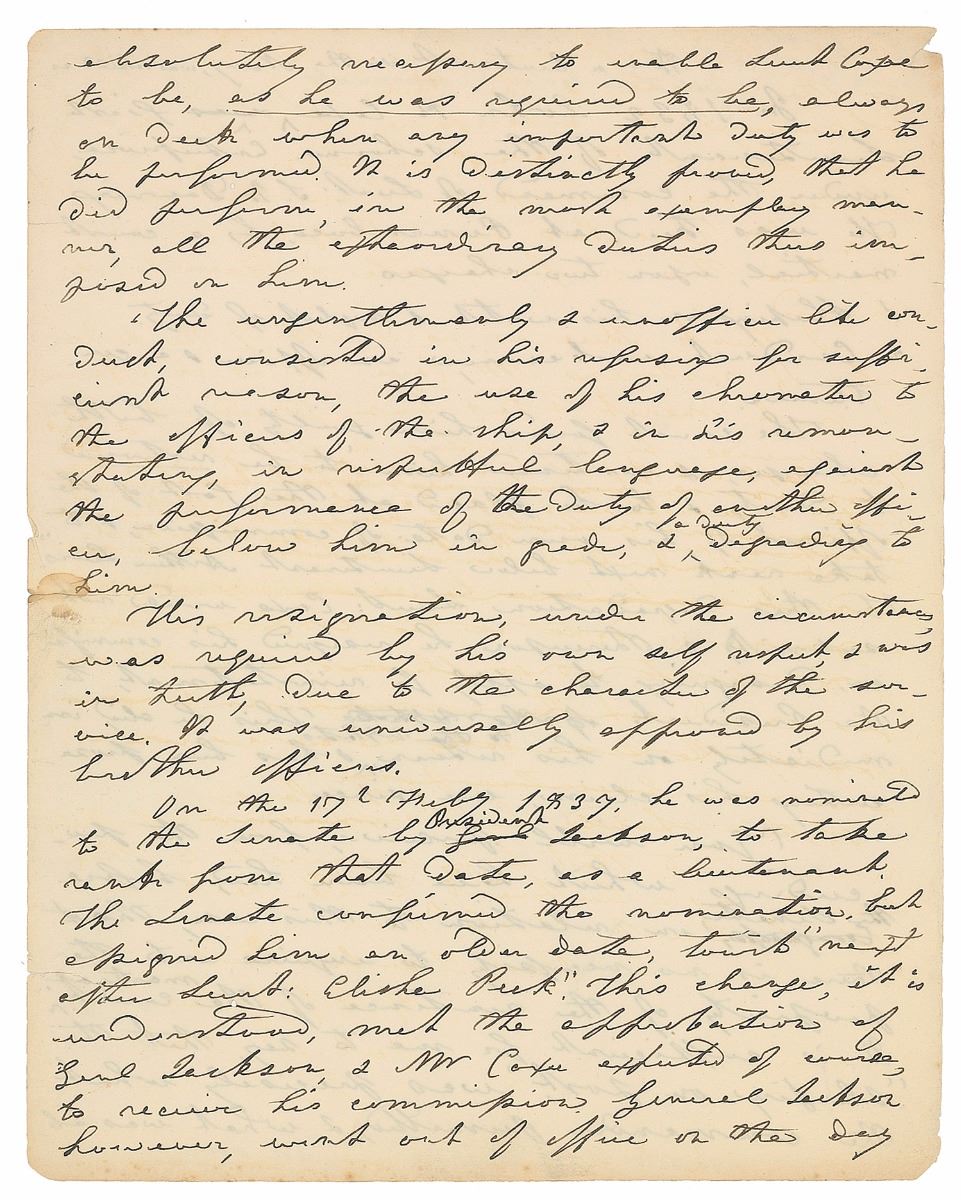 absolutely necessary to enable Lieut Coxe
to be, as he was required to be, always
on deck when any important duty was to
be performed. It is distinctly proved, that he
did perform, in the most exemplary man-
ner, all the extraordinary duties thus im-
posed on him.
The ungentlemanly & unofficer like con-
duct, consisted in his refusing for suffi-
cient reason, the use of his chronometer to
the officers of the ship, & in his remon-
strating, in respectful language, against
the performance of the duty of another offi-
cer, below him in grade, & a duty degrading to
him.
His resignation, under the circumstances,
was required by his own self respect, & was
in truth, due to the character of the ser-
vice. It was universally approved by his
brother officers.
On the 17th Feby 1837, he was nominated
to the Senate by Genl President Jackson, to take
rank from that date, as a lieutenant.
The Senate confirmed the nomination, but
assigned him an older date, to rank "next
after Lieut: Elisha Peck". This change, it is
understood, met the approbation of
Genl Jackson, & Mr Coxe expected of course,
to receive his commission. General Jackson
however, went out of office on the day